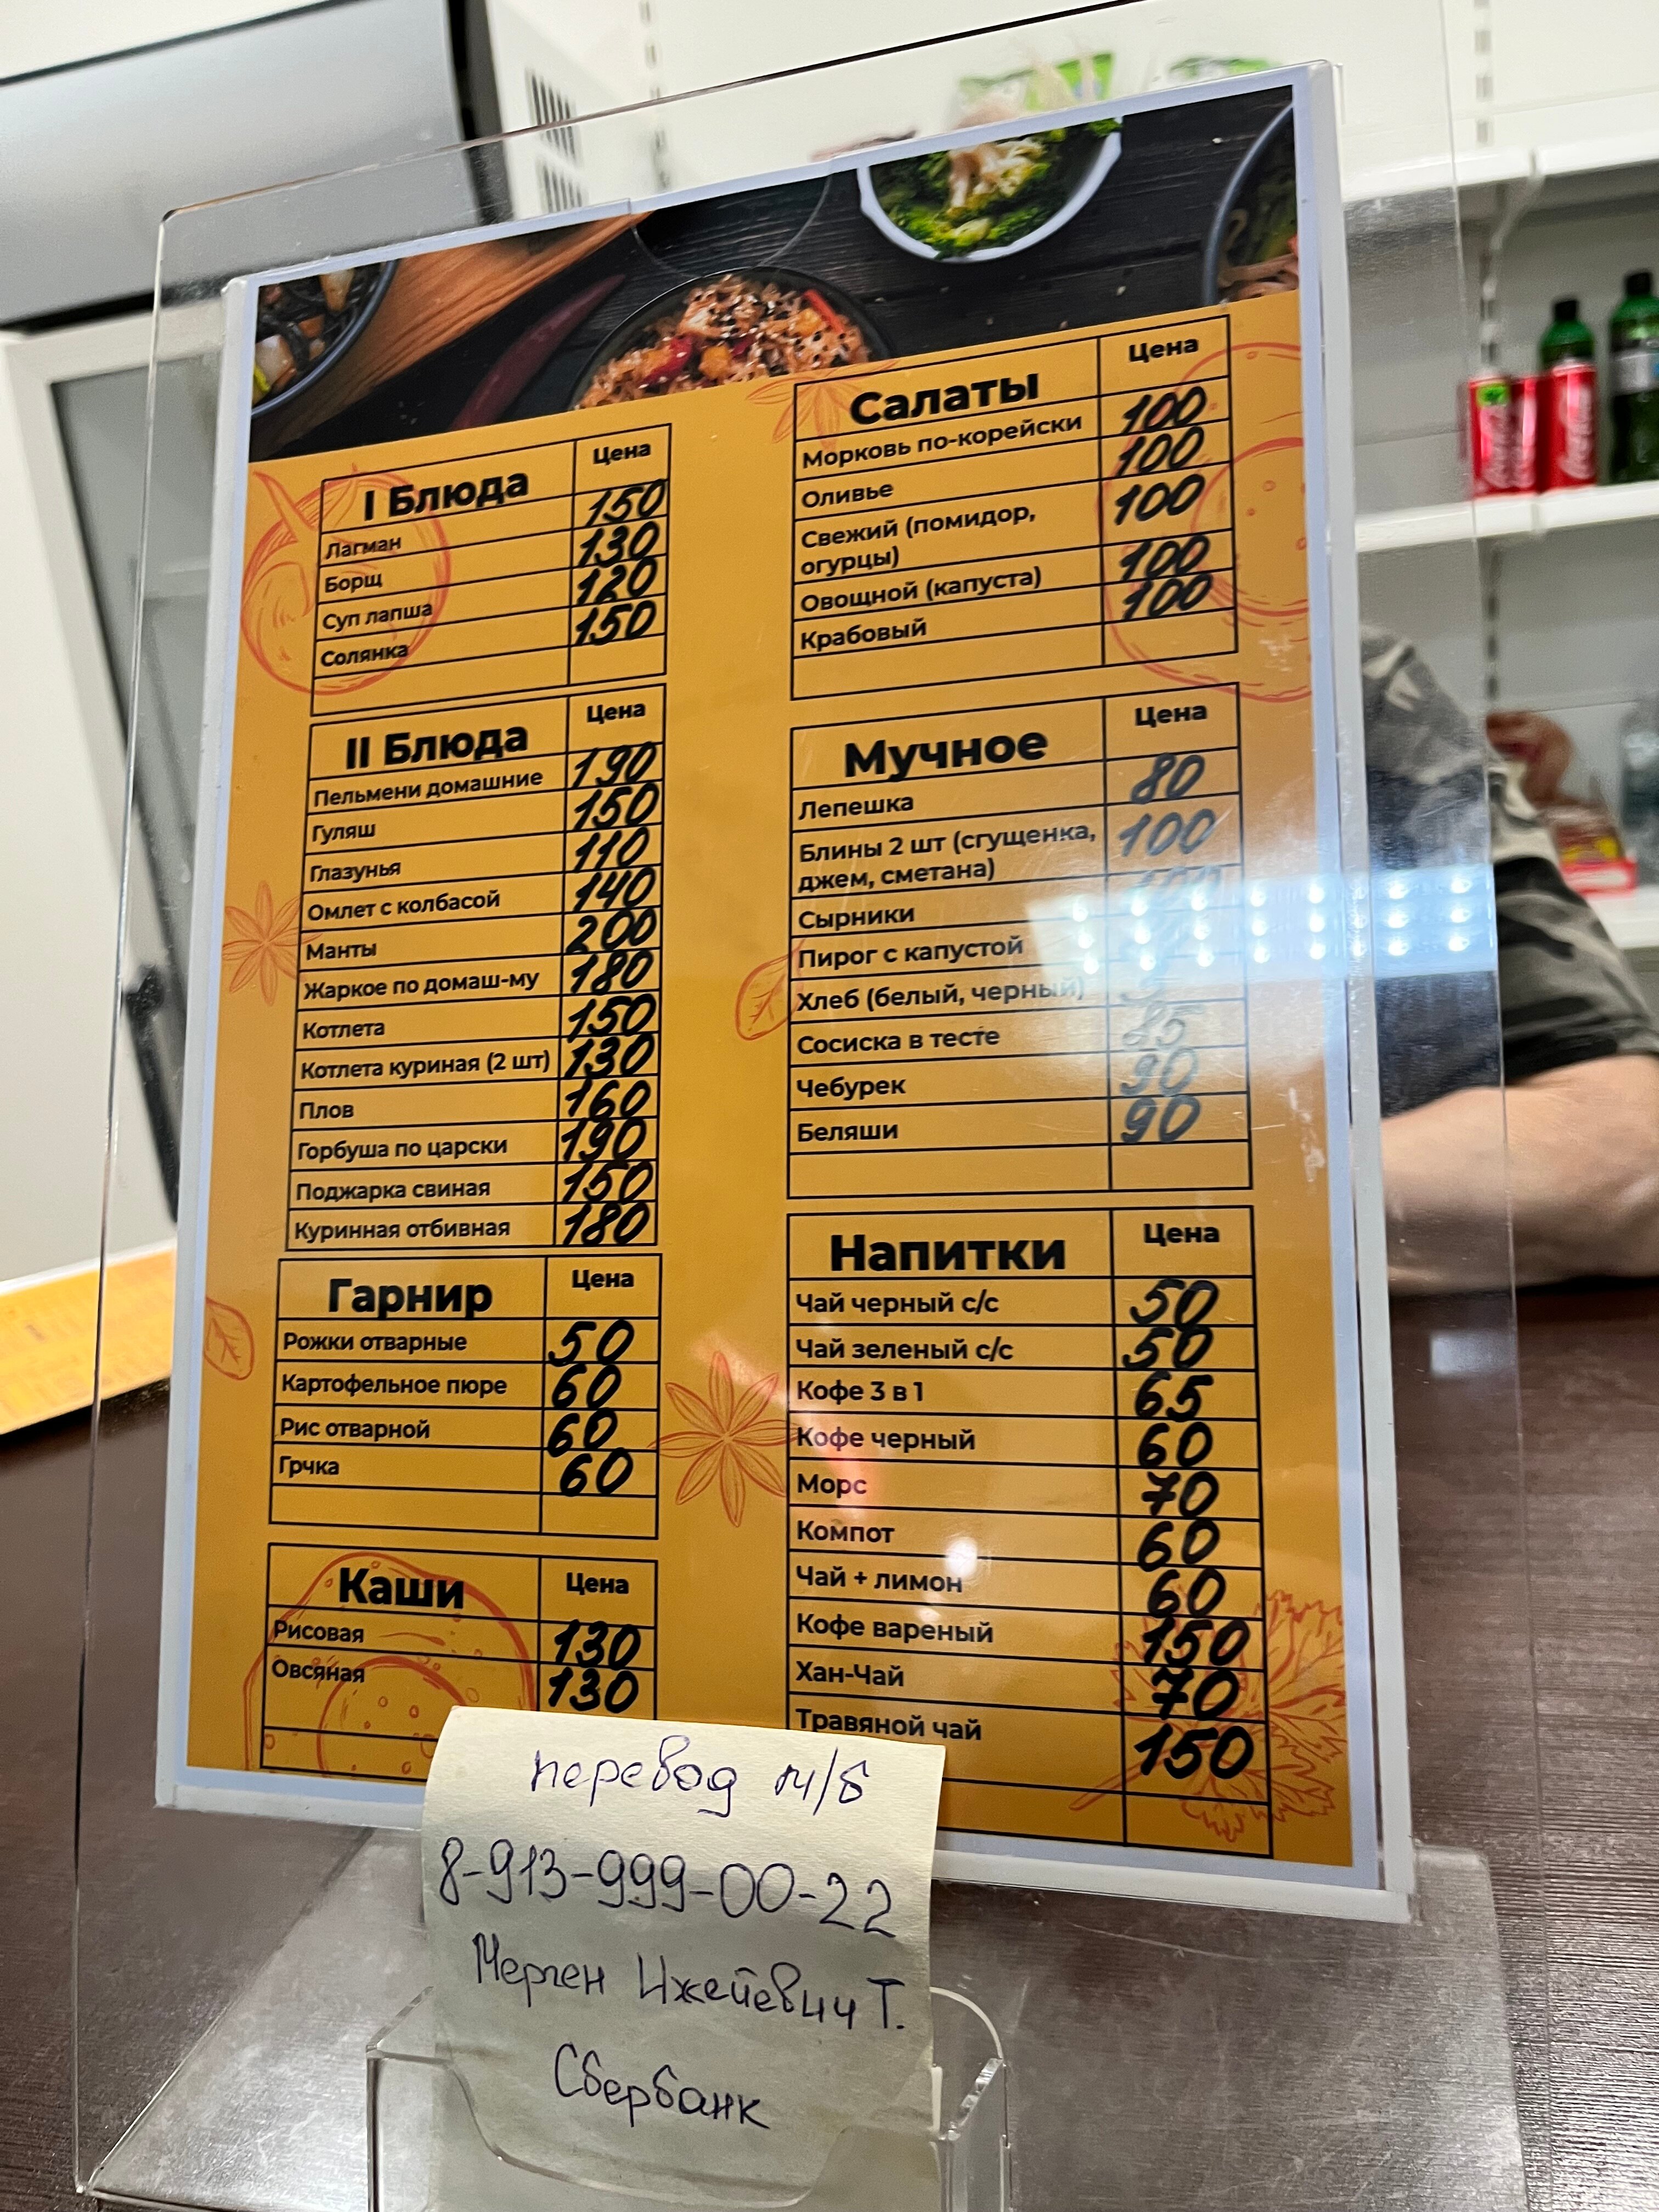 I Блюда Цена
Лагман 150
Борщ 130
Суп лапша 120
Солянка 150
II Блюда Цена
Пельмени домашние 190
Гуляш 150
Глазунья 110
Омлет с колбасой 140
Манты 200
Жаркое по домаш-му 180
Котлета 150
Котлета куриная (2 шт) 130
Плов 160
Горбуша по царски 190
Поджарка свиная 150
Куринная отбивная 180
Гарнир Цена
Рожки отварные 50
Картофельное пюре 60
Рис отварной 60
Грчка 60
Каши Цена
Рисовая 130
Овсяная 130
Салаты Цена
Морковь по-корейски 100
Оливье 100
Свежий (помидор, 100
огурцы)
Овощной (капуста) 100
Крабовый 100
Мучное Цена
Лепешка 80
Блины 2 шт (сгущенка, 100
джем, сметана)
Сырники
Пирог с капустой
Хлеб (белый, черный)
Сосиска в тесте 85
Чебурек 90
Беляши 90
Напитки Цена
Чай черный с/с 50
Чай зеленый с/с 50
Кофе 3 в 1 65
Кофе черный 60
Морс 70
Компот 60
Чай + лимон 60
Кофе вареный 150
Хан-Чай 70
Травяной чай 150
перевод м/б
8-913-999-00-22
Мерген Ижейевич Т.
Сбербанк